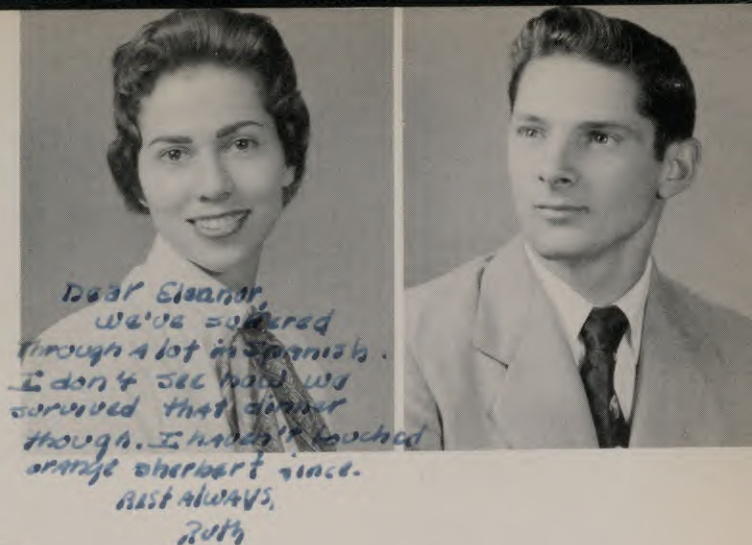 Dear Eleanor,
we've suffered
through a lot in Spanish.
I don't see how we
survived that dinner
though. I haven't touched
orange sherbert since.
Best Always,
Ruth